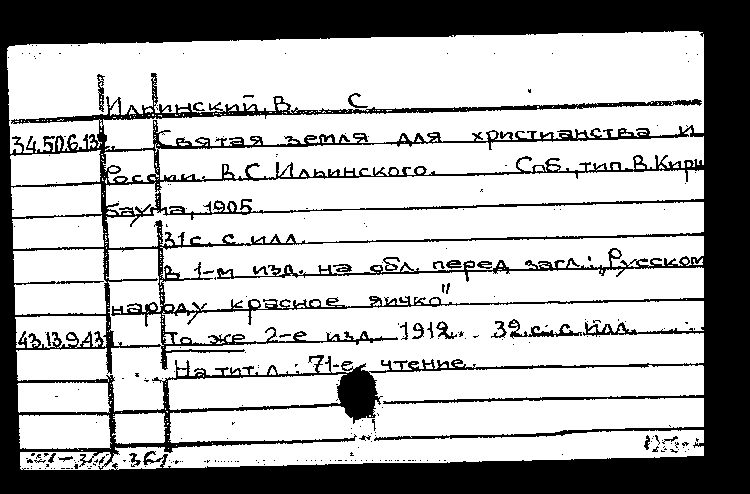 Ильинский, В. С.
34.50.6.139. Святая земля для христианства и
России. В.С Ильинского. Спб., тип. В. Кирш
баума, 1905
31 с. с илл.
В 1-м изд. на обл. перед загл.: „Русском
народу красное яичко"
43.13.9.431. То же 2-е изд. 1912. 32.с. с илл.
На тит. л.: 71-е чтение.
361.